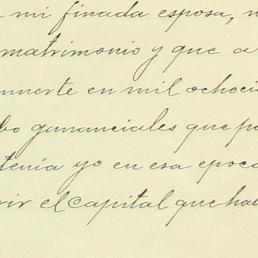 mi finada esposa,
matrimonio y que a
muerte en mil ochoci
bo gananciales que po
tenia yo en esa epoca
rir el capital que hab